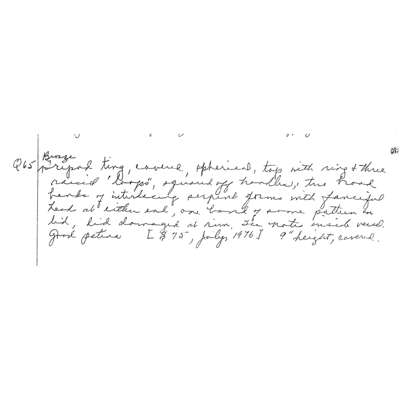 Bronze
Q65 tripod ting, covered, spherical, top with ring & three
raised "loops", squared off handles, two broad
bands of interlacing serpent forms with fanciful
head at either end, one band of same pattern on
lid, lid damaged at rim. See note inside vessel.
Good patina [$75, July, 1976] 9" height, covered.